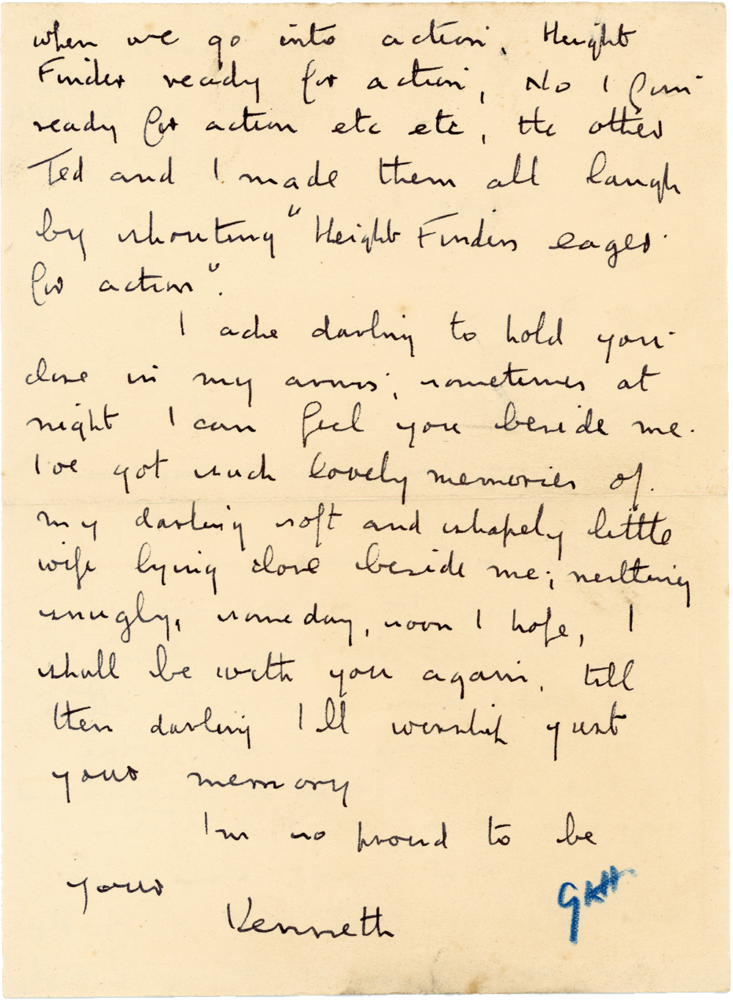 when we go into action, Height
Finder ready for action, No 1 Gun
ready for action etc etc, the other
Ted and I made them all laugh
by shouting "Height Finders eager
for action".
I ache darling to hold you
close in my arms, sometimes at
night I can feel you beside me.
I've got such lovely memories of
my darling soft and shapely little
wife lying close beside me; nestling
snugly, someday, soon I hope, I
shall be with you again, till
then darling I'll worship just
your memory
I'm so proud to be
yours
Kenneth